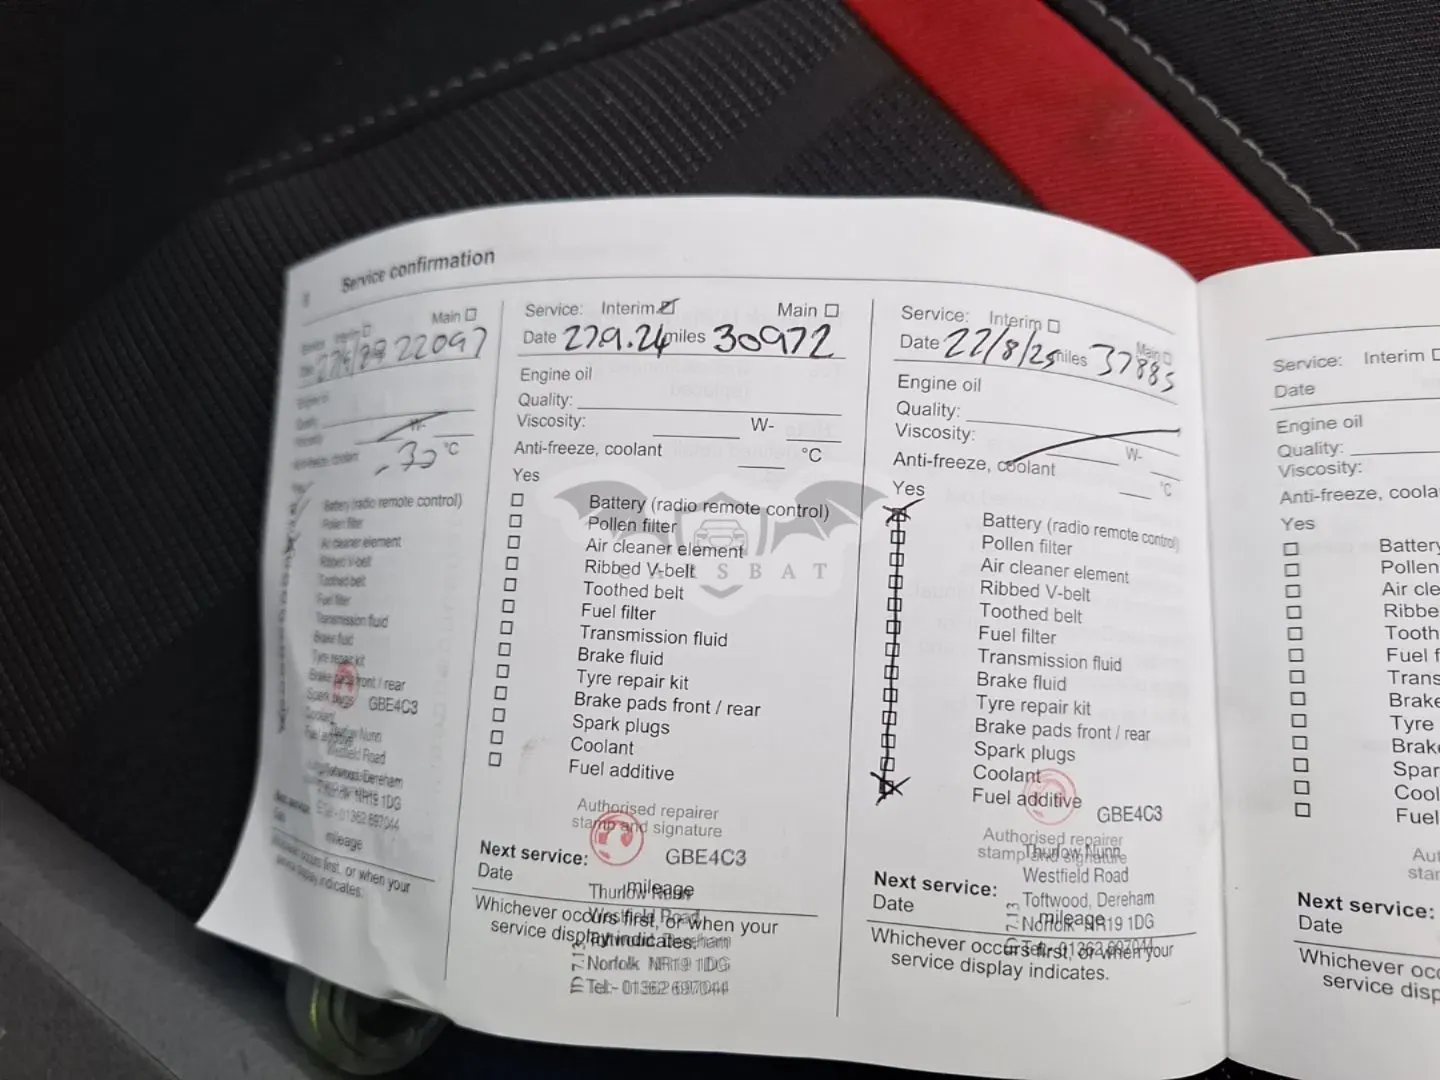 Service confirmation
Main
22097
W-
-30 °C
Battery (radio remote control)
Pollen filter
Air cleaner element
Ribbed V-belt
Toothed belt
Fuel filter
Transmission fluid
Brake fluid
Tyre repair kit
Brake pads front / rear
Spark plugs GBE4C3
Westfield Road
Toftwood, Dereham
NR19 1DG
01362 697044
mileage
occurs first, or when your
service display indicates.
Service: Interim Main
Date 27.9.24 miles 30972
Engine oil
Quality:
Viscosity: W-
Anti-freeze, coolant °C
Yes
Battery (radio remote control)
Pollen filter
Air cleaner element
Ribbed V-belt
Toothed belt
Fuel filter
Transmission fluid
Brake fluid
Tyre repair kit
Brake pads front / rear
Spark plugs
Coolant
Fuel additive
Authorised repairer
stamp and signature
GBE4C3
Next service:
Date mileage
Thurlow Nunn
Westfield Road
Whichever occurs first, or when your
service display indicates.
Toftwood, Dereham
Norfolk NR19 1DG
Tel:- 01362 697044
Service: Interim Main
Date 22/8/25 miles 37885
Engine oil
Quality:
Viscosity: W-
Anti-freeze, coolant °C
Yes
Battery (radio remote control)
Pollen filter
Air cleaner element
Ribbed V-belt
Toothed belt
Fuel filter
Transmission fluid
Brake fluid
Tyre repair kit
Brake pads front / rear
Spark plugs
Coolant
Fuel additive
GBE4C3
Authorised repairer
stamp and signature
Thurlow Nunn
Westfield Road
Next service:
Toftwood, Dereham
Date mileage
Norfolk NR19 1DG
Tel:- 01362 697044
Whichever occurs first, or when your
service display indicates.
Service: Interim
Date
Engine oil
Quality:
Viscosity:
Anti-freeze, coola
Yes
Battery
Pollen
Air cle
Ribbe
Tooth
Fuel f
Trans
Brake
Tyre
Brak
Spar
Cool
Fuel
Aut
star
Next service:
Date
Whichever occ
service disp
CARSBAT